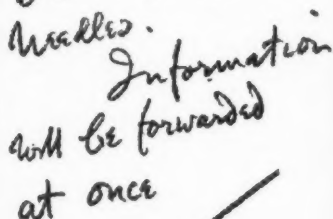 Needles.
Information
will be forwarded
at once